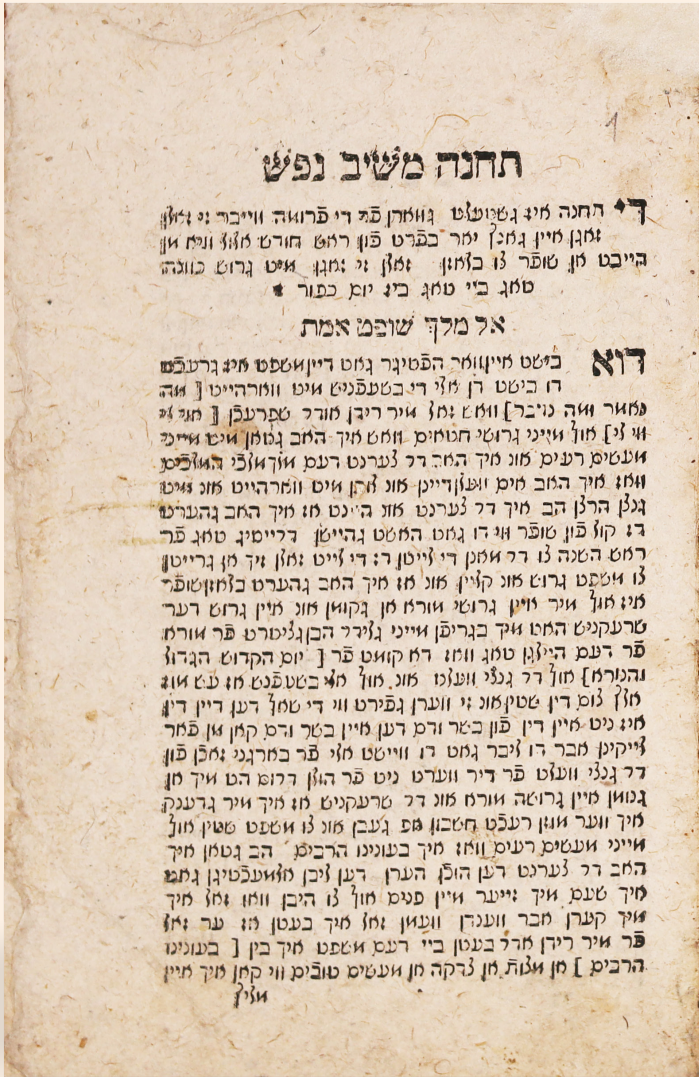 תחנה משיב נפש
די תחנה איז געשטעלט גווארן פר די פרומה ווייבר זיא זאלן
זאגן איין גאנץ יאר בפרט פון ראש חודש אלול וויא מן
הייבט אן שופר צו בלאזן זאלן זיא זאגן מיט גרוש כוונה
טאג בייא טאג ביז יום כפור
אל מלך שופט אמת
דוא בישט איין ווארהפטיגר גאט דיין משפט איז גרעכט
דו בישט דן אלי די בשעפניש מיט ווארהייט [ מה
נאמר ומה נדבר ] וואש זאל מיר רידן אודר שפרעכן [ אוי לי
ווי לי ] אויף מייני גרושי חטאים וואש איך האב גטאן מיט מייני
מעשים רעים אונ איך האב דר צערנט דעם מלך מלכי המלכים
וואז איך האב אים זעלין דינן אונ זאגן מיט ווארהייט אונ מיט
גנצן הרצן הב איך דר צערנט אונ היינט אז איך האב גהערט
דז קול פון שופר ווי דו גאט האשט גהייסן דרייסיג טאג פר
ראש השנה צו דר מאנן די לייטן דז די לייט זאלן זיך אן גרייטן
צו משפט גרוש אונ קליין אונ אז איך האב גהערט בלאזן שופר
איז אויף מיר איין גרושי מורא אן גקומן אונ איין גרוש דער
שרעקניש האט מיך בגריפן מייני גלידר הבן גציטרט פר מורא
פר דעם הייליגן טאג וואז דא קומט פר [ יום הקדוש הגדול
והנורא ] אויף דר גנצי וועלט אונ אויף אלי בשעפניש אז עש מוז
אלץ צום דין שטין אונ זיי ווערן גפירט ווי די שאף דען דיין דין
איז ניט איין דין פון בשר ודם דען איין בשר ודם קאן מן פאר
לייקינן אבר דו ליבר גאט דו ווייסט אלי פר בארגני זאכן פון
דר גנצי וועלט פר דיר ווערט ניט פר הולן דרום הט מיך אן
גנומן איין גרושה מורא אונ דר שרעקניש אז איך מיר גדענק
איך ווער מוזן רעכט חשבון אפ געבן אונ צו משפט שטין אויף
מייני מעשים רעים וואז איך בעונינו הרבים הב גטאן איך
האב דר צערנט דען הוכן הערן דען ליבן אלמעכטיגן גאט
איך שעם מיך זייער מיין פנים אויף צו היבן וואו זאל איך
מיך קערן אבר ווענדן וועמן זאל איך בעטן אז ער זאל
פר מיר רידן אדר בעטן בייא דעם משפט איך בין [ בעונינו
הרבים ] אן מצות אן צדקה אן מעשים טובים ווי קאן איך איין
מליץ